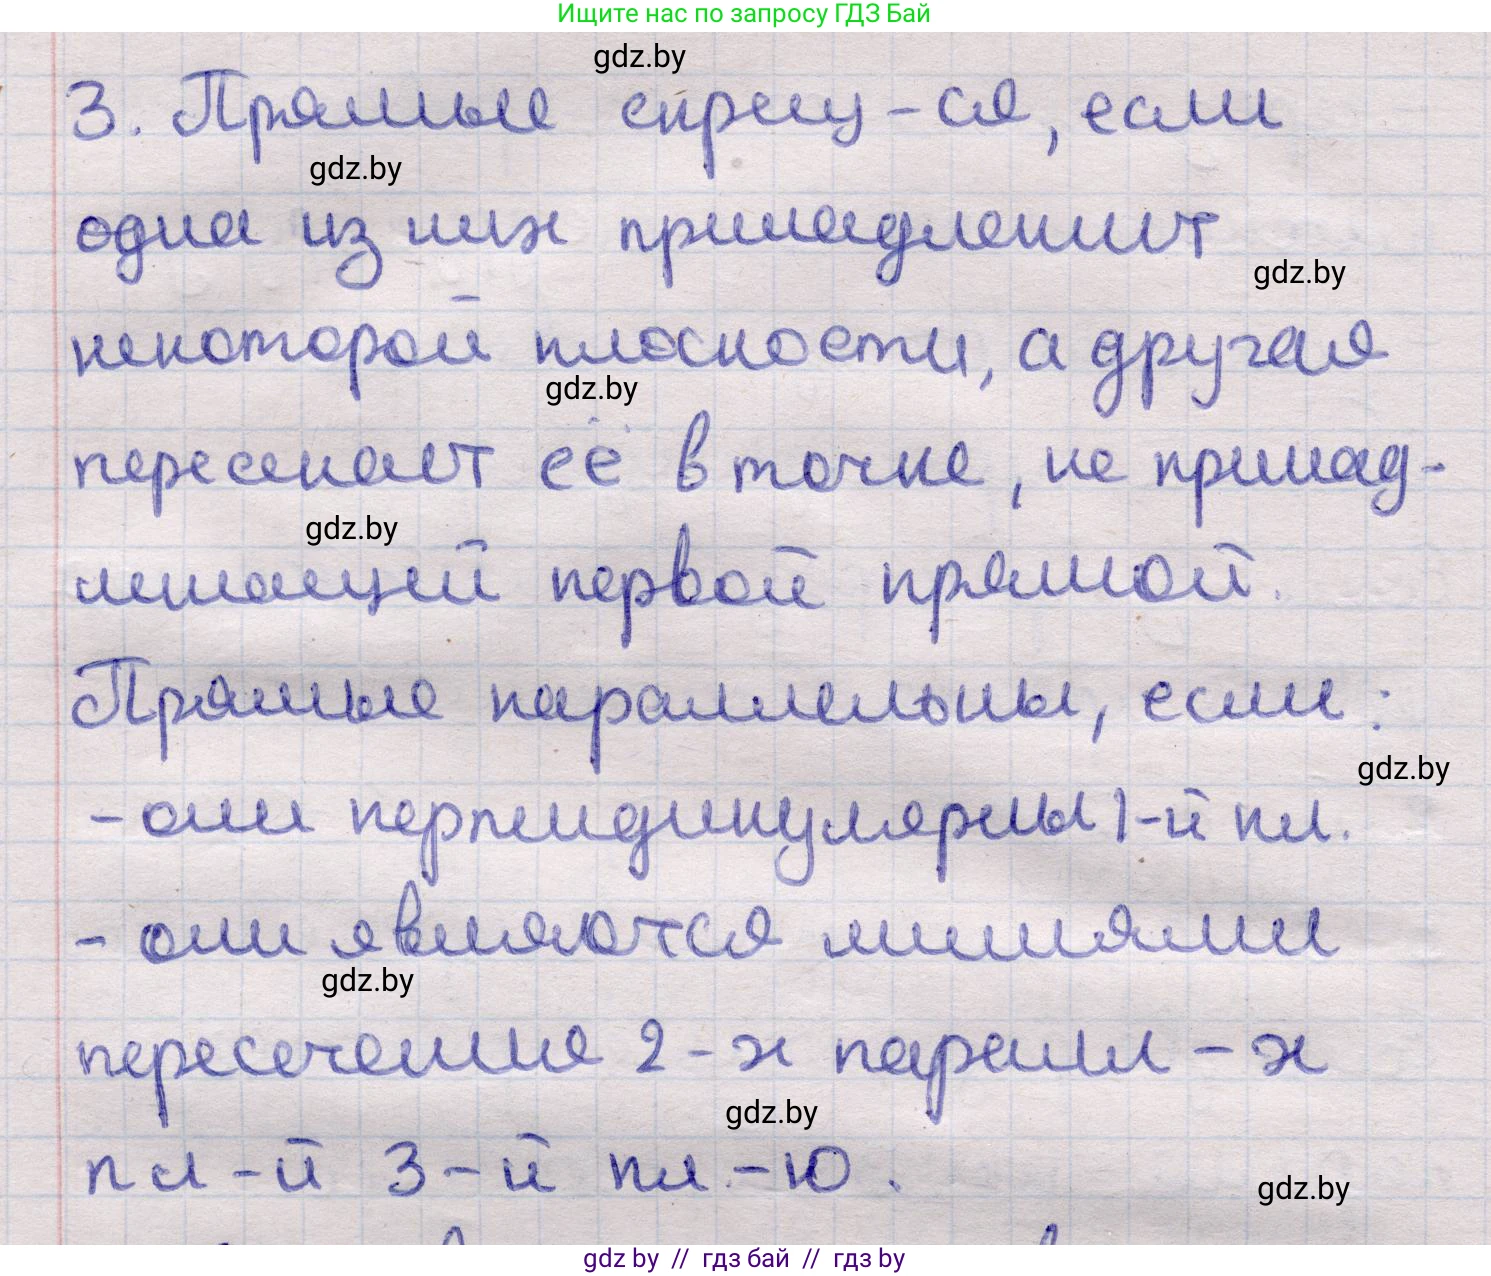 Ищите нас по запросу ГДЗ Бай
gdz.by
3. Прямые скрещ-ся, если
gdz.by
одна из них принадлежит
gdz.by
некоторой плоскости, а другая
gdz.by
пересекает её в точке, не принад-
gdz.by
лежащей первой прямой.
Прямые параллельны, если:
gdz.by
- они перпендикулярны 1-й пл.
- они являются линиями
gdz.by
пересечения 2-х паралл-х
gdz.by
пл-й 3-й пл.-ю.
gdz.by
gdz by // гдз бай // гдз by